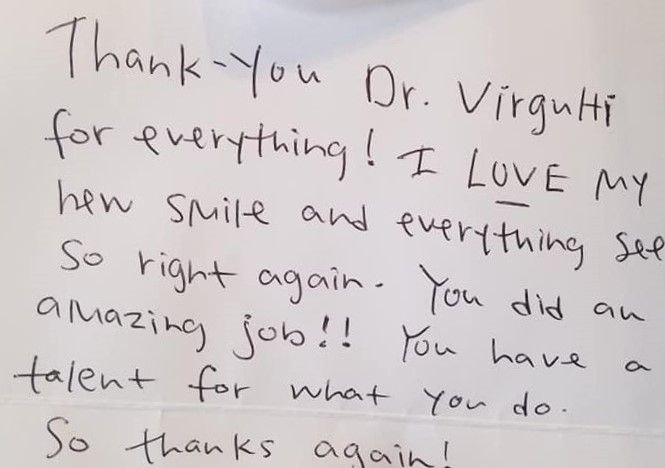 Thank-You Dr. Virgutti
for everything! I LOVE MY
new smile and everything see
So right again. You did an
amazing job!! You have a
talent for what you do.
So thanks again!